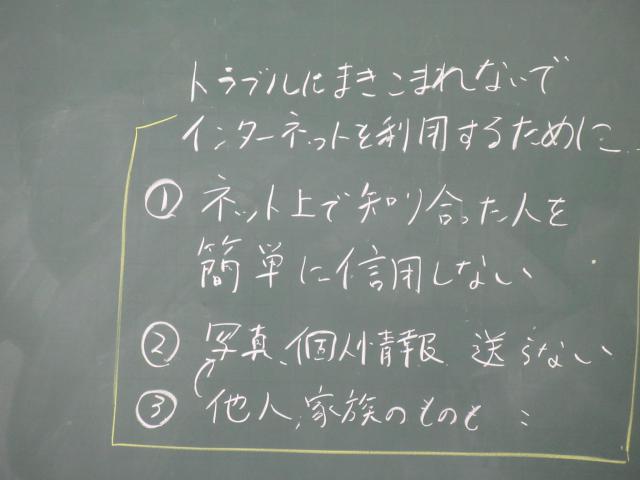 トラブルにまきこまれないで
インターネットを利用するために…
① ネット上で知り合った人を
簡単に信用しない
② 写真、個人情報 送らない
③ 他人、家族のものも